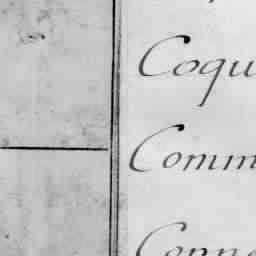 Coqu
Comm
Conn